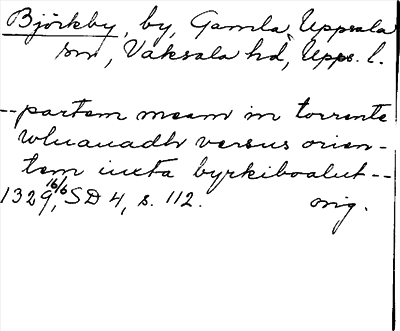 Björkby, by, Gamla Uppsala
sn, Vaksala hd, Upps. l.
--partem meam in torrente
wluauadh versus orien-
tem iuxta byrkiboalut--
1329 16/6, SD 4, s. 112. orig.